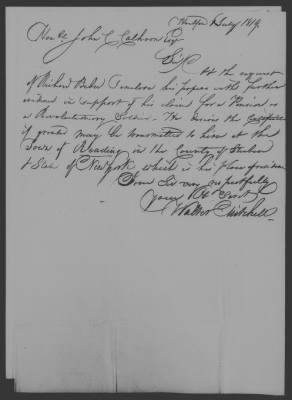 Hartford July 1819
Honble John C Calhoun Esq
Sir
At the request
of Richard Baker I enclose his papers with further
evidence in support of his claim for a Pension as
a Revolutionary Soldier. He desires the Certificate
if granted may be transmitted to him at the
Town of Reading in the County of Steuben
& State of New York which is his place of residence
I am Sir very respectfully
Your Obt Servt
Walter Mitchell